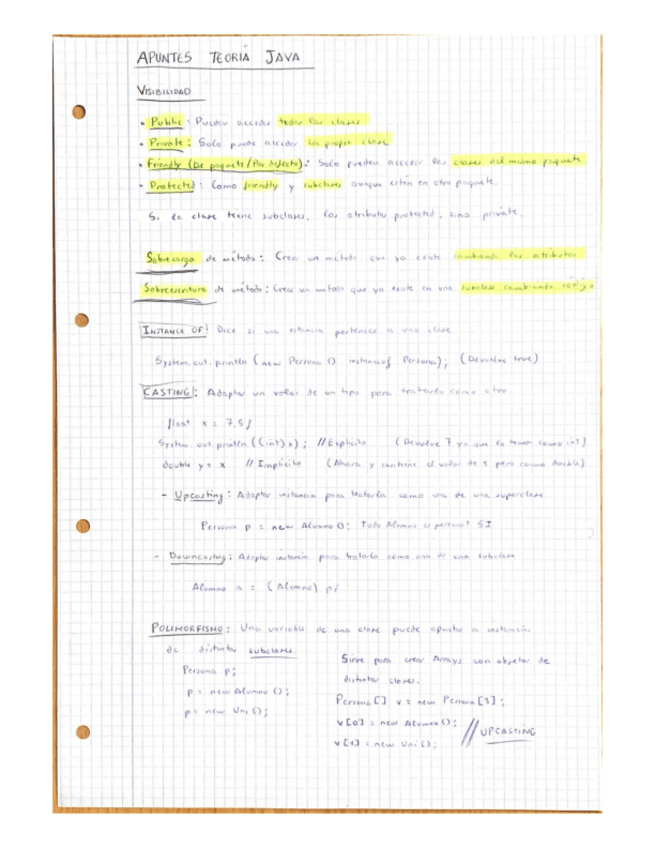 APUNTES TEORÍA JAVA
VISIBILIDAD
• Public: Pueden acceder todas las clases
• Private: Solo puede acceder la propia clase
• Friendly (De paquete/Por defecto): Solo pueden acceder las clases del mismo paquete
• Protected: Como friendly y subclases aunque estén en otro paquete.
Si la clase tiene subclases, los atributos protected, sino private.
Sobrecarga de método: Crear un método que ya existe cambiando los atributos
Sobreescritura de método: Crear un método que ya existe en una subclase cambiando código
INSTANCE OF: Dice si una instancia pertenece a una clase
System.out.println (new Persona () instanceof Persona); (Devuelve true)
CASTING: Adaptar un valor de un tipo para tratarlo como otro
float x = 7.5f
System.out.println ((int)x); // Explícito (Devuelve 7 ya que lo toman como int)
double y = x // Implícito (Ahora y contiene el valor de x pero como double)
- Upcasting: Adaptar instancia para tratarla como una de una superclase
Persona p = new Alumno (); Todo Alumno es persona? SI
- Downcasting: Adaptar instancia para tratarla como una de una subclase
Alumno a = (Alumno) p;
POLIMORFISMO: Una variable de una clase puede apuntar a instancias
de distintas subclases.
Persona p;
p = new Alumno ();
p = new Uni ();
Sirve para crear Arrays con objetos de
distintas clases.
Persona [] v = new Persona [3];
v[0] = new Alumno (); // UPCASTING
v[1] = new Uni ();